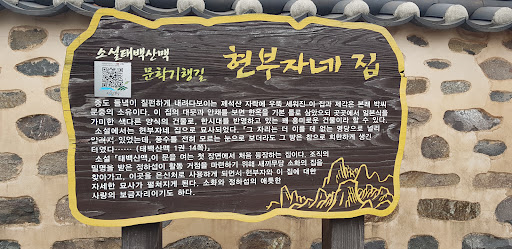 소설태백산맥
문학기행길
현부자네 집
중도 들녘이 질펀하게 내려다보이는 제석산 자락에 우뚝 세워진 이 집과 제각은 본래 박씨
문중의 소유이다. 이 집의 대문과 안채를 보면 한옥을 기본 틀로 삼았으되 곳곳에 일본식을
가미한 색다른 양식의 건물로, 한 시대를 반영하고 있는 꽤 흥미로운 건물이라 할 수 있다.
소설에서는 현부자네 집으로 묘사되었다. '그 자리는 더 이를 데 없는 명당으로 널리
알려져 있었는데, 풍수를 전혀 모르는 눈으로 보더라도 그 땅은 참으로 희한하게 생긴
터였다------- (태백산맥 1권 14쪽).
소설 「태백산맥」이 문을 여는 첫 장면에서 처음 등장하는 집이다. 조직의
밀명을 받은 정하섭이 활동 거점을 마련하기 위해 새끼무당 소화의 집을
찾아가고, 이곳을 은신처로 사용하게 되면서 현부자와 이 집에 대한
자세한 묘사가 펼쳐지게 된다. 소화와 정하섭의 애틋한
사랑의 보금자리이기도 하다.